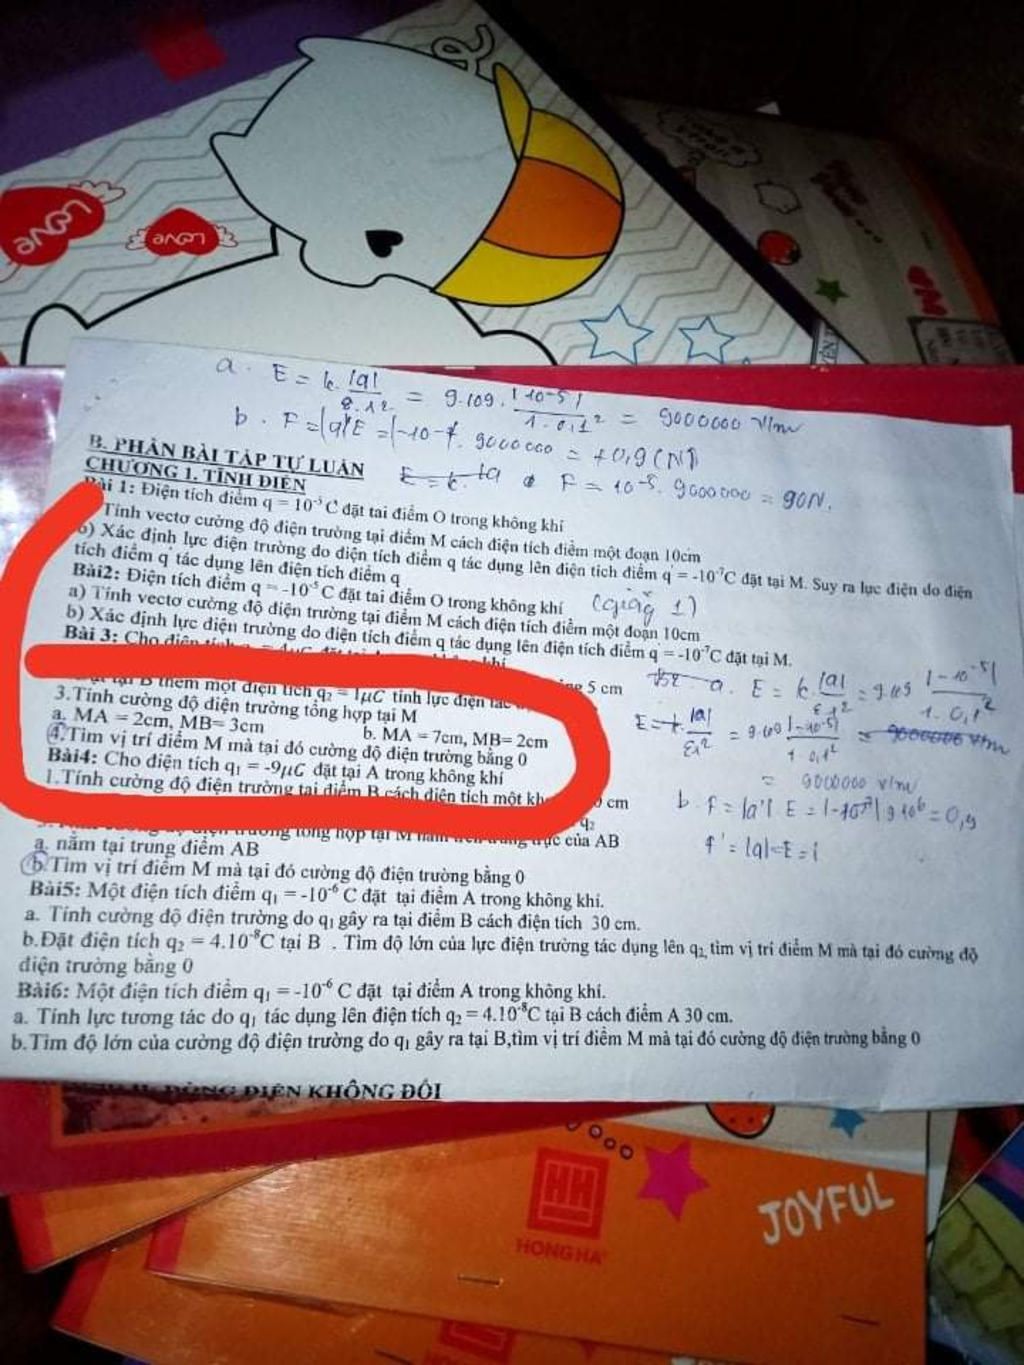 Love
Love
a. E = k.|q|/ε.r² = 9.109.|10-5|/1.0,1² = 9000000 V/m
b. F = |q|E = |-10-7. 9000000 = +0,9 (N)
F = 10-5. 9000000 = 90N.
B. PHẦN BÀI TẬP TỰ LUẬN
CHƯƠNG 1. TĨNH ĐIỆN
Bài 1: Điện tích điểm q = 10⁻⁵ C đặt tai điểm O trong không khí
Tính vectơ cường độ điện trường tại điểm M cách điện tích điểm một đoạn 10cm
b) Xác định lực điện trường do điện tích điểm q tác dụng lên điện tích điểm q = -10⁻⁷C đặt tại M. Suy ra lực điện do điện
tích điểm q tác dụng lên điện tích điểm q
Bài2: Điện tích điểm q = -10⁻⁵ C đặt tai điểm O trong không khí
a) Tính vectơ cường độ điện trường tại điểm M cách điện tích điểm một đoạn 10cm
b) Xác định lực điện trường do điện tích điểm q tác dụng lên điện tích điểm q = -10⁻⁷C đặt tại M.
Bài 3: Cho điện tích
5 cm
B thêm một điện tích q₂ = 1μC tính lực điện
3.Tính cường độ điện trường tổng hợp tại M
a. MA = 2cm, MB= 3cm b. MA = 7cm, MB= 2cm
4.Tìm vị trí điểm M mà tại đó cường độ điện trường bằng 0
Bài4: Cho điện tích q₁ = -9μC đặt tại A trong không khí
1.Tính cường độ điện trường tại điểm B cách điện tích một
cm
q₂
tổng hợp tại M
của AB
a. nằm tại trung điểm AB
b.Tìm vị trí điểm M mà tại đó cường độ điện trường bằng 0
Bài5: Một điện tích điểm q₁ = -10⁻⁶ C đặt tại điểm A trong không khí.
a. Tính cường độ điện trường do q₁ gây ra tại điểm B cách điện tích 30 cm.
b.Đặt điện tích q₂ = 4.10⁻⁸C tại B . Tìm độ lớn của lực điện trường tác dụng lên q₂, tìm vị trí điểm M mà tại đó cường độ
điện trường bằng 0
Bài6: Một điện tích điểm q₁ = -10⁻⁶ C đặt tại điểm A trong không khí.
a. Tính lực tương tác do q₁ tác dụng lên điện tích q₂ = 4.10⁻⁸C tại B cách điểm A 30 cm.
b.Tìm độ lớn của cường độ điện trường do q₁ gây ra tại B,tìm vị trí điểm M mà tại đó cường độ điện trường bằng 0
a. E = k.|q|/εr² = 9.109 |-10-5|/1.0,1²
= 9000000 V/m
b. F = |q'|. E = |-10-7| 9.10⁶ = 0,9
ĐIỆN KHÔNG ĐỔI
HH
HONG HA
JOYFUL